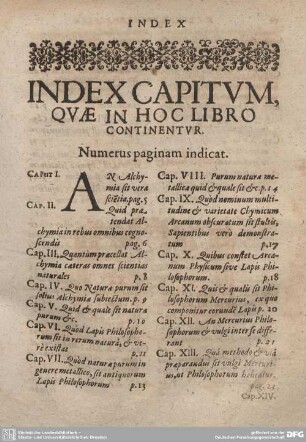 INDEX
INDEX CAPITVM,
QVÆ IN HOC LIBRO
CONTINENTVR.
Numerus paginam indicat.
CAPUT I. AN Alchy-
mia sit vera
sciētia, pag. 5
CAP. II. Quid præ-
tendat Al-
chymia in rebus omnibus cogno-
scendis pag. 6
Cap. III. Quantum præcellat Al-
chymia cæteras omnes scientias
naturales p. 8
Cap. IV. Quo Natura purum sit
solius Alchymiæ subiectum. p. 9
Cap. V. Quid & quale sit natu-
ræ purum &c. p. 10
Cap. VI. Quod Lapis Philosopho-
rum sit in rerum natura, & ve-
rè existat p. 11
Cap. VII. Quod naturæ purum in
genere metallico, sit antiquorum
Lapis Philosophorum p. 13
Cap. VIII. Purum naturæ me-
tallicæ quid & quale sit &c. p. 14
Cap. IX. Quod nominum multi-
tudine & varietate Chymicum
Arcanum obscuratum sit stultis,
Sapientibus verò demonstra-
tum p. 17
Cap. X. Quibus constet Arca-
num Physicum sive Lapis Phi-
losophorum. p. 18
Cap. XI. Quis & qualis sit Phi-
losophorum Mercurius, ex quo
componitur eorundē Lapis p. 20
Cap. XII. An Mercurius Philo-
sophorum & vulgi inter se diffe-
rat p. 21
Cap. XIII. Quâ methodo & viâ
præparandus sit vulgi Mercuri-
us, ut Philosophorum
Cap. XIV.
DFG